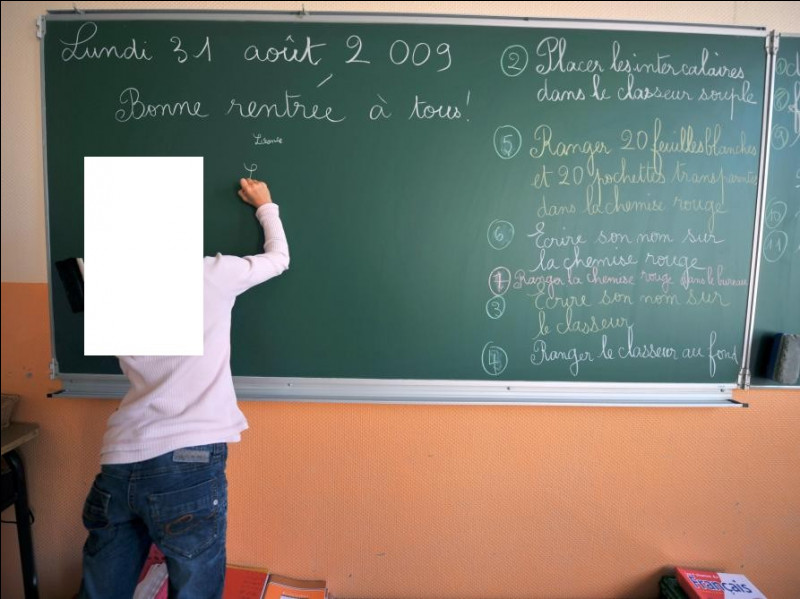 Lundi 31 août 2 009
Bonne rentrée à tous!
2 Placer les intercalaires
dans le classeur souple
5 Ranger 20 feuilles blanches
et 20 pochettes transparentes
dans la chemise rouge
6 Ecrire son nom sur
la chemise rouge
7 Ranger la chemise rouge dans le bureau
3 Ecrire son nom sur
le classeur
4 Ranger le classeur au fond
9
10
11
Français